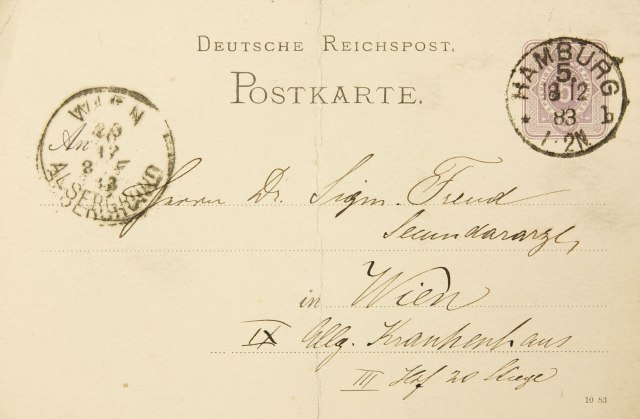 DEUTSCHE REICHSPOST.
POSTKARTE.
HAMBURG
5.
18 12
83 b
1-2N
WIEN
20
12
ALSERGRUND
An
Herrn Dr. Sigm. Freud
Secundararzt,
in Wien
IX Allg. Krankenhaus
III Hof 20 Stiege
10 83